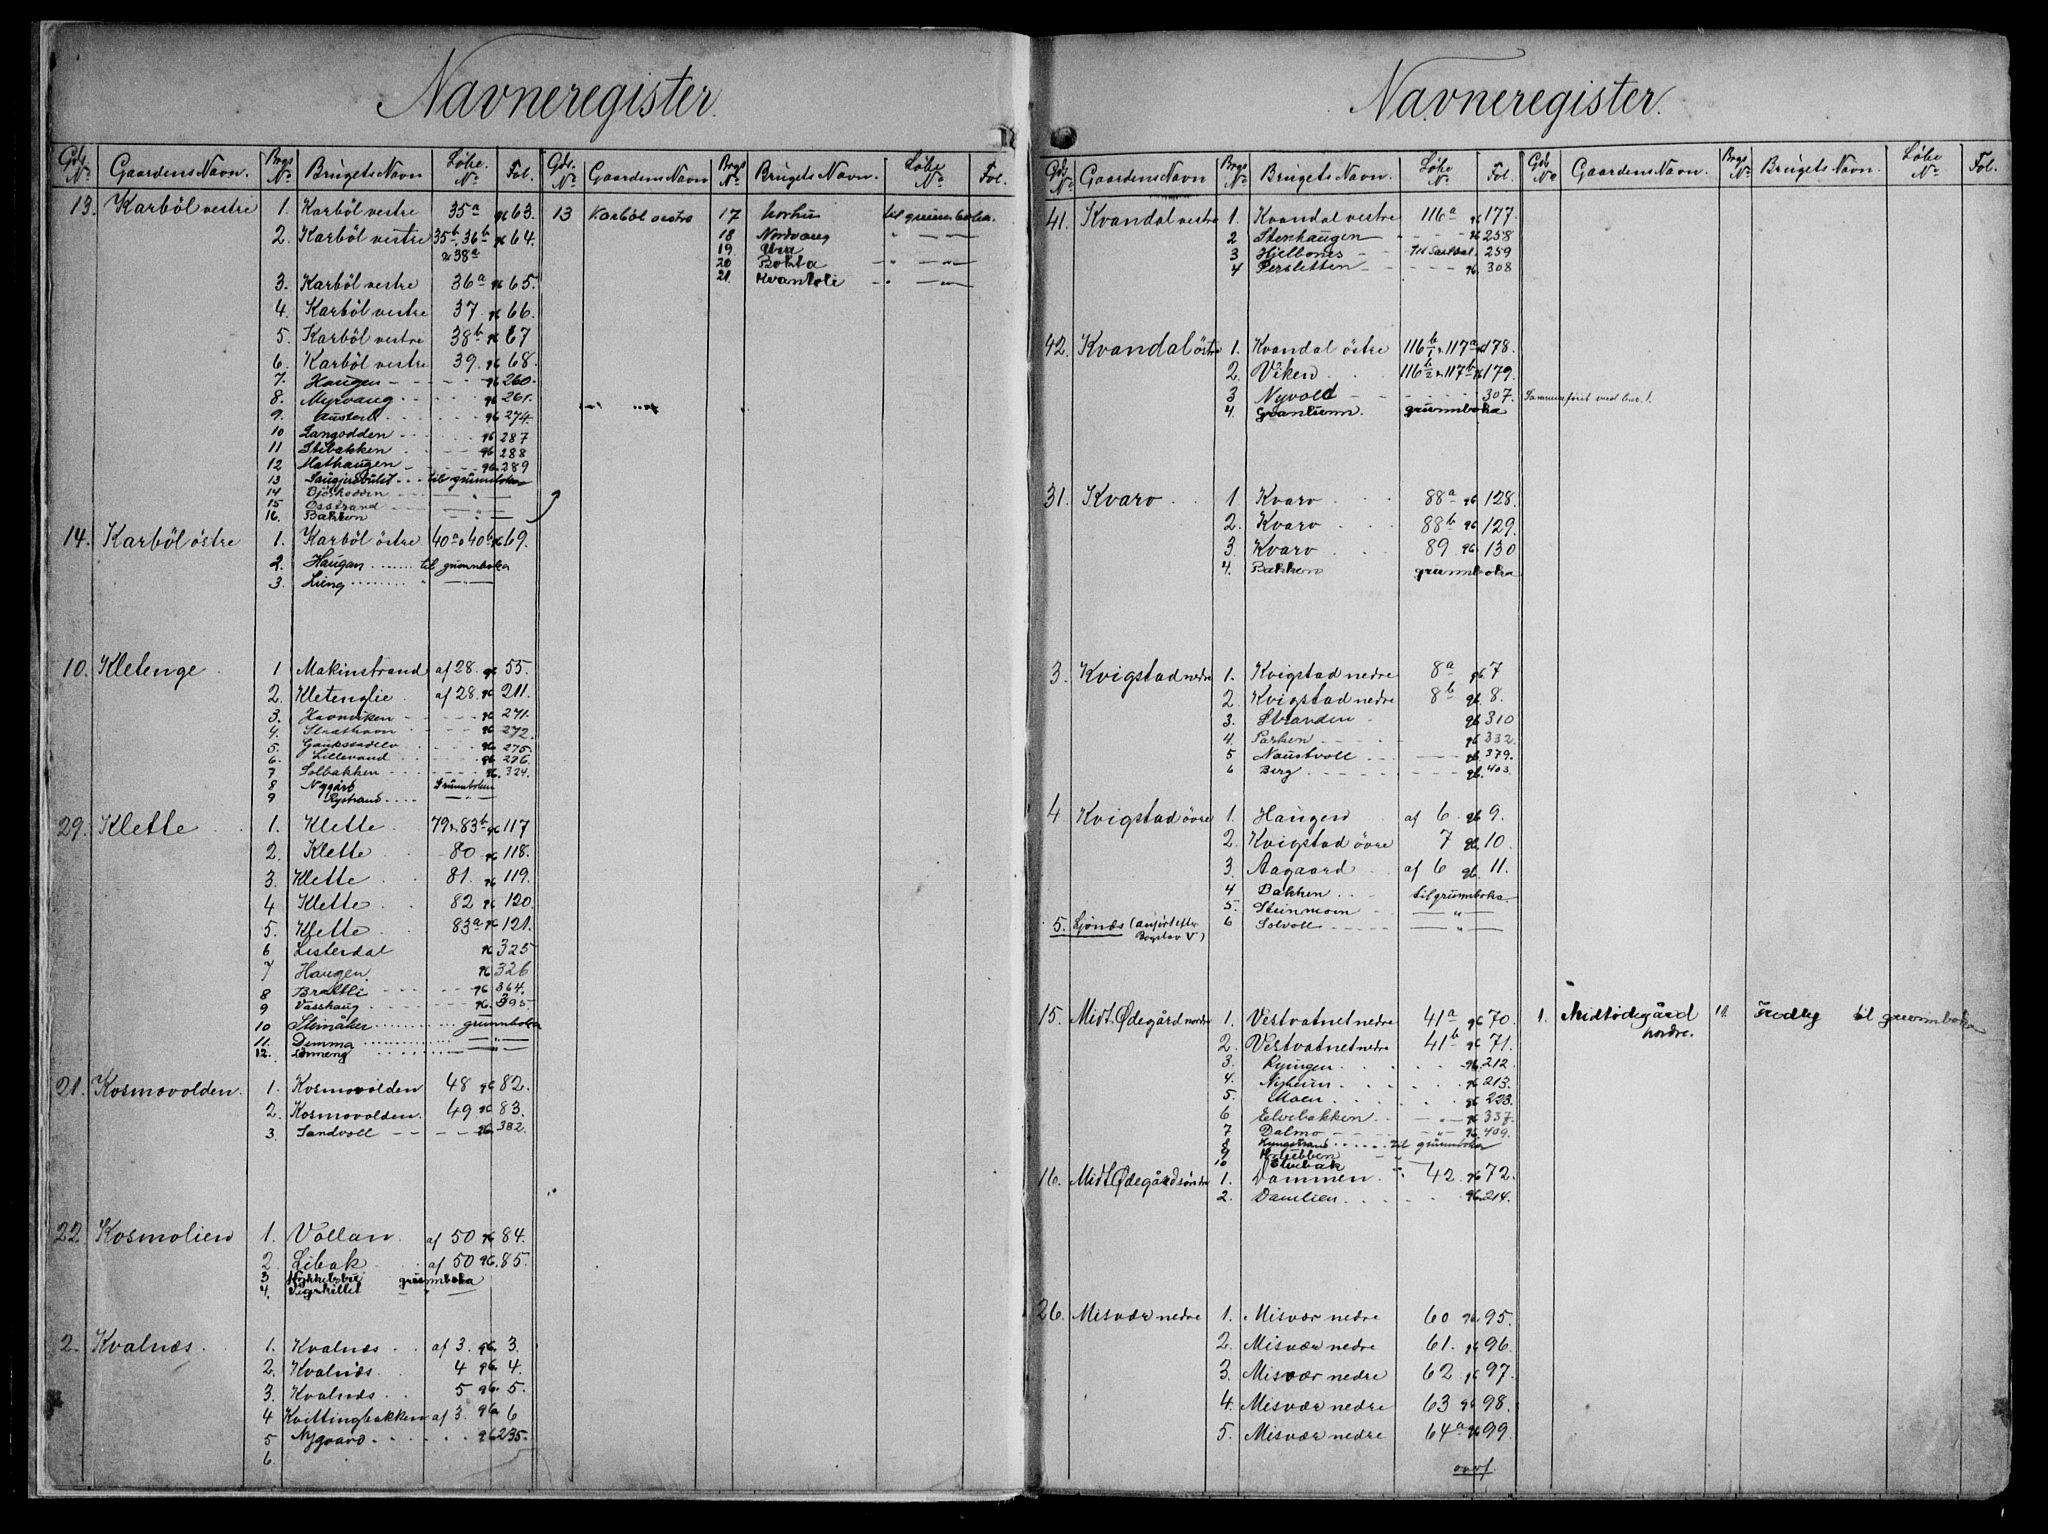 Navneregister.
Gds. No. Gaardens Navn. Brgs No. Brugets Navn Løbe No. Fol. Gds. No. Gaardens Navn Brgs No. Brugets Navn. Løbe No. Fol.
13. Karböl vestre 1. Karböl vestre 35a 96 63. 13 Karböl vestre 17 Norhus til grunnboka.
2. Karböl vestre 35b, 36b 96 64. 18 Nordvang " —"—
& 38a 19. Ura " —"—
20 Bokta " —"—
3. Karböl vestre 36a 96 65. 21. Kvantoli " —"—
4. Karböl vestre 37 96 66.
5. Karböl vestre 38b 96 67
6. Karböl vestre 39. 96 68.
7. Haugen 96 260.
8. Myrvang 96 261.
9. Austorli 96 274.
10 Langodden 96 287
11 Stibakken 96 288
12 Mathaugen 96 289
13 til grunnboka
14 —"—
15. Osstrand —"—
16. Bakken —"—
14. Karböl östre 1. Karböl östre 40a & 40b 96 69.
2. Haugan til grunnboka
3. Lieng " —"—
10. Kletenge 1 Makinstrand af 28. 96 55.
2. Kletenglie af 28. 96 211.
3. Havnviken 96 271.
4. 96 272.
5. 96 275.
6. Lillevand 96 276.
7 Solbakken 96. 324.
8 Nygård Grunnboken
9 Rystrand —"—
29. Klette 1. Klette 79 & 83b 96 117
2. Klette 80 96 118.
3. Klette 81. 96 119.
4 Klette 82 96 120.
5. Klette 83a 96 121.
6 Listerdal 96 325
7 Haugen 96 326
8 Brattli 96 364.
9 Vasshaug 96. 395
10 Steinåker grunnboka
11. Demma —"—
12. Lönneng —"—
21. Kosmovolden. 1. Kosmovolden 48 96 82.
2. Kosmovolden. 49 96 83.
3. Sandvoll 96. 382.
22 Kosmolien 1. Vollan. af 50 96 84.
2 Libak af 50 96. 85.
3 grunnboka
4. —"—
2. Kvalnæs. 1. Kvalnæs af 3. 96. 3.
2. Kvalnæs 4 96. 4.
3. Kvalnæs 5 96. 5.
4 Kvittingbakken af 3. 96. 6
5 Nygaard 96 235.
6
Navneregister.
Gds. No. Gaardens Navn Brgs No. Brugets Navn. Løbe No. Fol. Gds No. Gaardens Navn. Brgs No. Brugets Navn. Løbe No. Fol.
41. Kvandal vestre 1. Kvandal vestre 116a 96 177.
2 Stenhaugen 96 258
3 Hjelbones Til Saltdal. 259
4 Persletten 96. 308
42. Kvandal östre 1. Kvandal östre 116b/1 & 117a 96 178.
2. Viken 116b/2 & 117b 96 179.
3 Nyvold 307. Sammenföiet med bnr. 1.
4. Granlunn. grunnboka
31. Kvarv 1 Kvarv 88a 96 128.
2. Kvarv 88b 96 129.
3 Kvarv 89 96. 130
4. Bakken grunnboka
3. Kvigstad nedre 1. Kvigstad nedre 8a 96 7
2 Kvigstad nedre 8b 96. 8.
3. Stranden 96. 310
4. Parken 96 332.
5 Naustvoll 96. 379.
6 Berg 96. 403.
4 Kvigstad övre 1. Haugen af 6 96 9.
2 Kvigstad övre 7 96. 10.
3. Aagaard af 6 96. 11.
4 Bakken til grunnboka.
5. Steinmoen —"—
5. Ljönæs (anført efter Bogstav V) 6 Solvoll —"—
15. Midt. Ødegård nordre 1. Vestvatnet nedre 41a 96 70. 1. Midtödegård nordre. 11. Fredly til grunnboka
2. Vestvatnet nedre 41b 96 71.
3. Lyngen 96. 212.
4. Nyheim 96 213.
5. Moen 96 223.
6 Elvebakken 96 337.
7 Dalmo 96. 409.
8 til grunnboka
9
10 Elvebak
16. Midt. Ødegård söndre 1. Dammen 42. 96 72.
2. Damlien 96. 214.
26. Misvær nedre 1. Misvær nedre 60 96. 95.
2. Misvær nedre 61. 96 96.
3. Misvær nedre 62 96 97.
4. Misvær nedre 63 96 98.
5. Misvær nedre 64a 96 99.
ovrf.